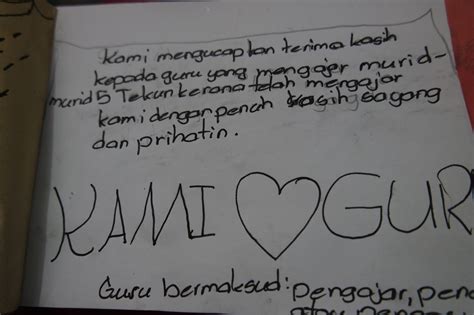 Kami mengucapkan terima kasih
kepada guru yang mengajar murid-
murid 5 Tekun kerana telah mengajar
kami dengan penuh kasih sayang
dan prihatin.
KAMI ♡ GUR
Guru bermaksud: pengajar, pen